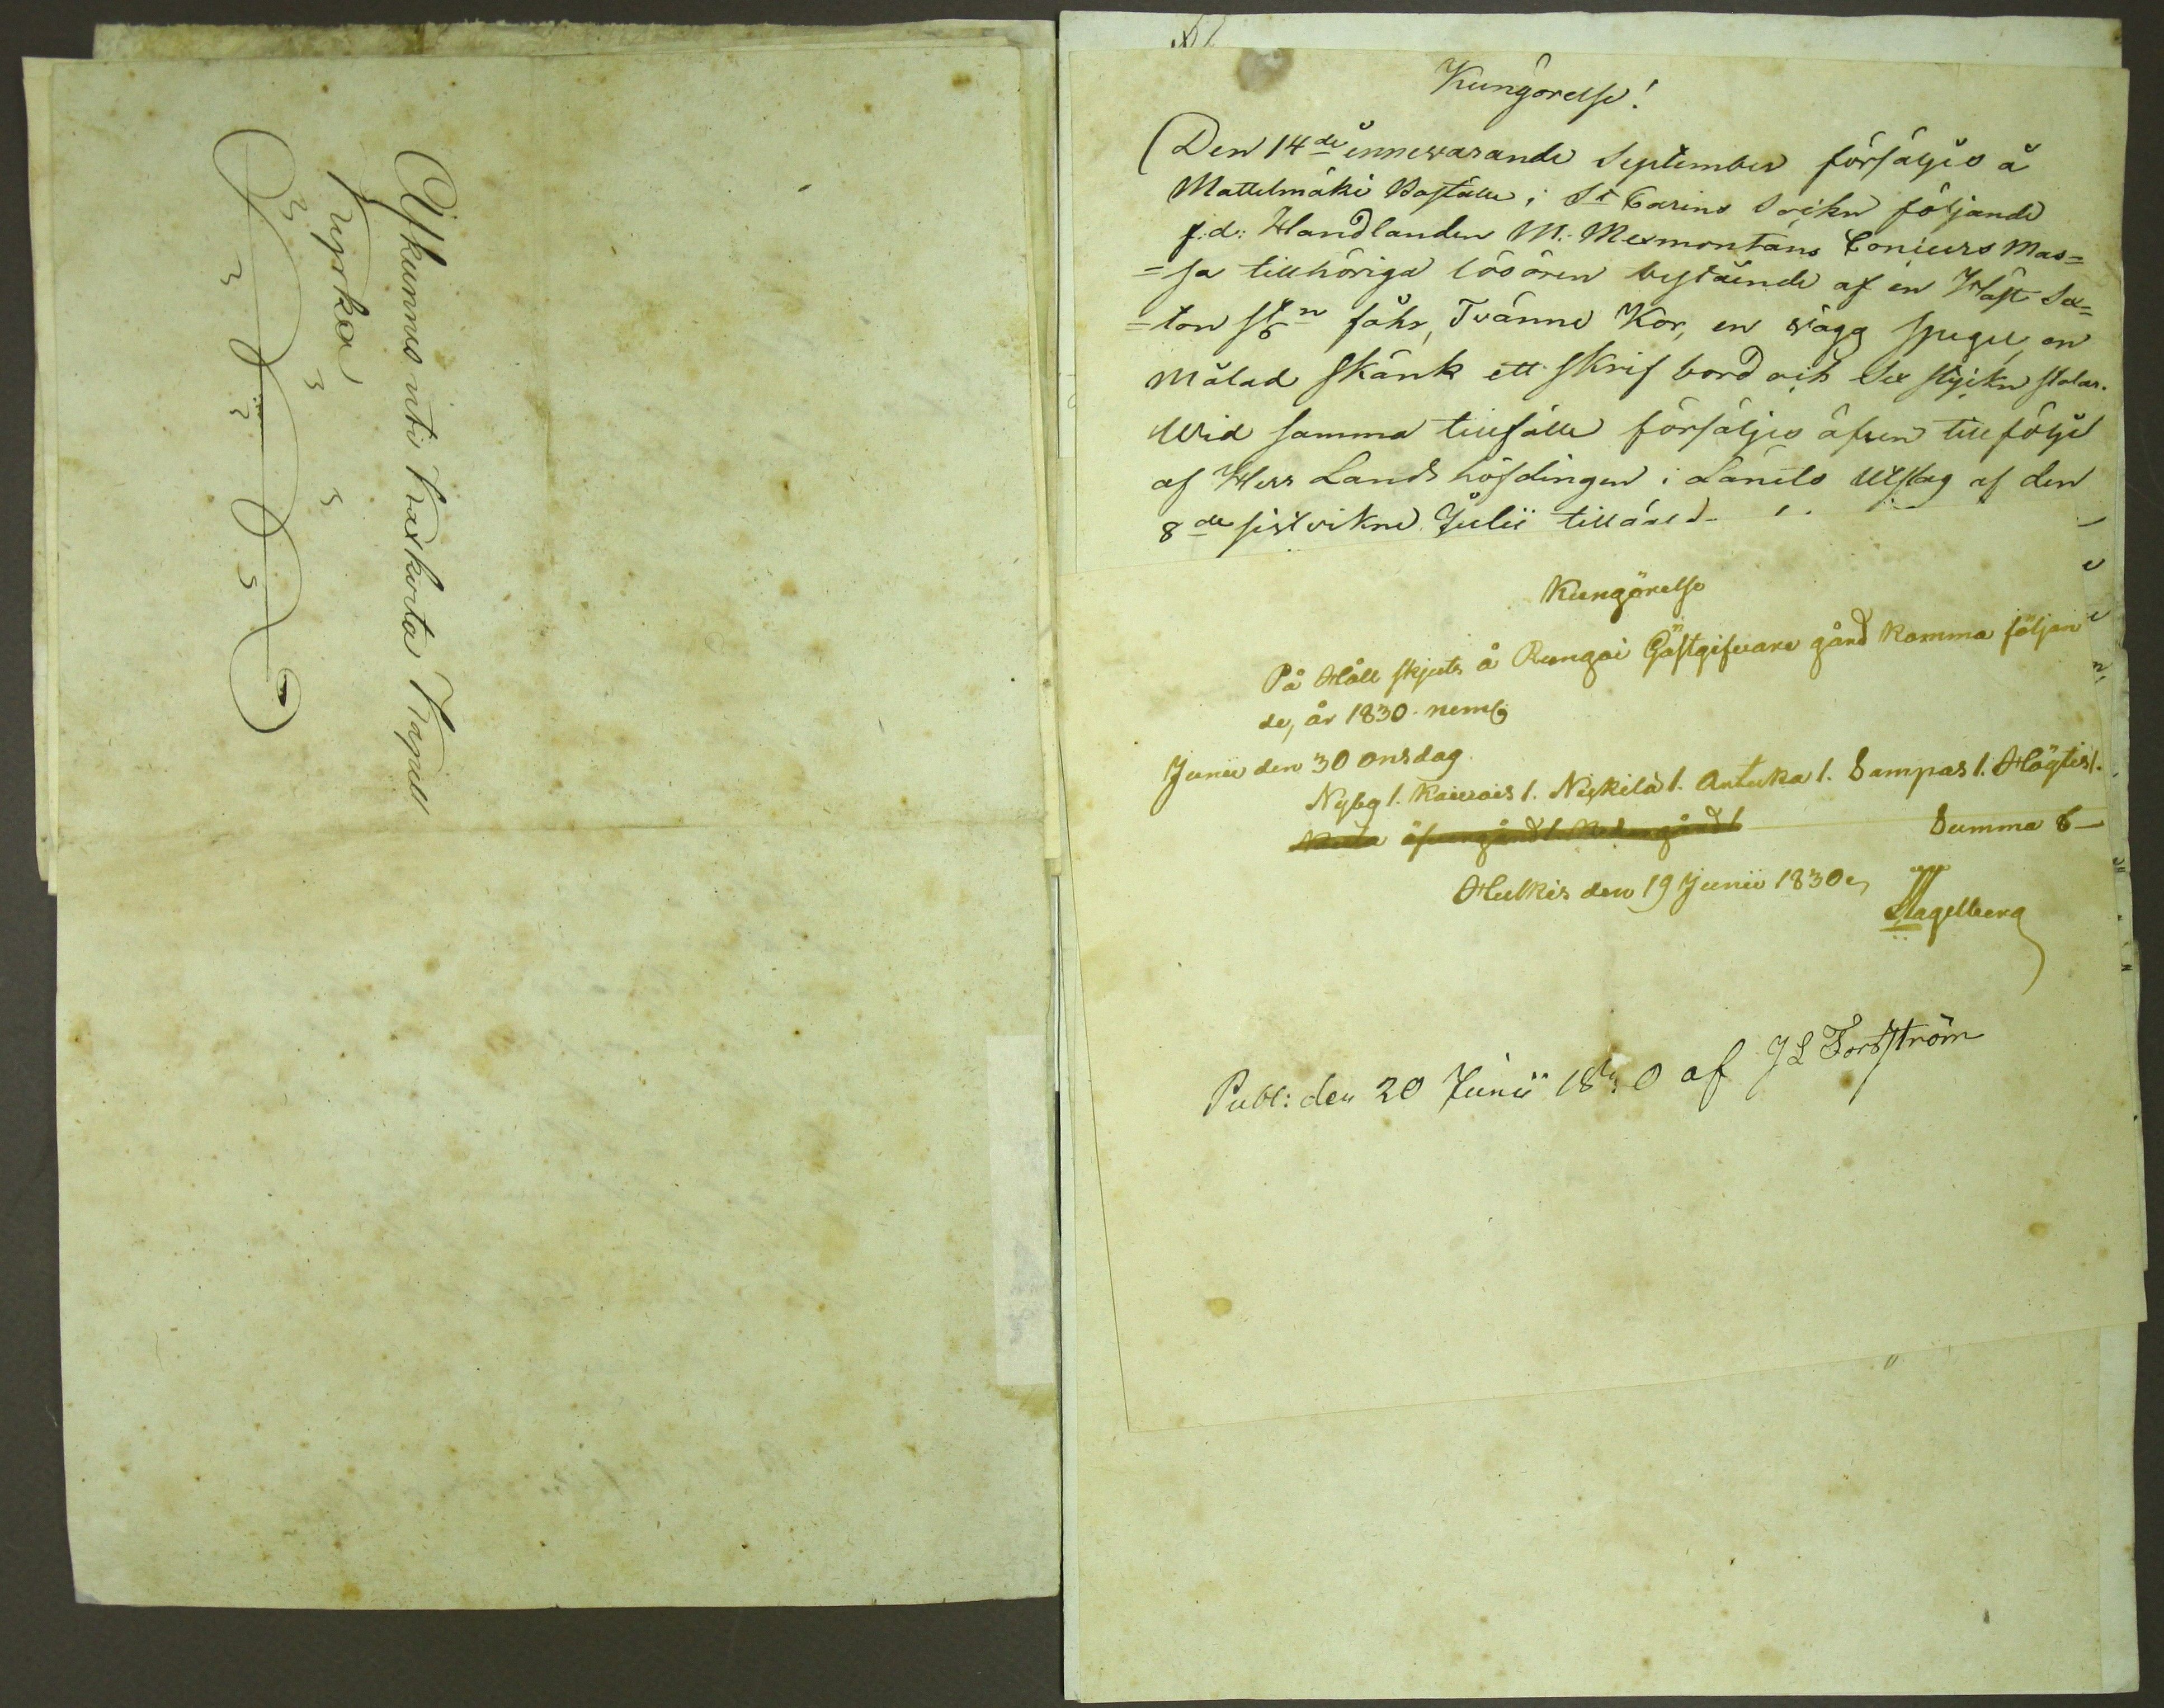 Kungörelse!
Den 14de innevarande September försäljes å
Mattelmäki Boställe i St Carins Sockn följande
f:d: Handlanden M: Mexmontans Concurs Mas=
=sa tillhöriga lösören bestående af en Häst Sex=
=ton st:n fåhr, Tvänne Kor, en vägg spegel, en
målad Skänk ett Skrif bord och Sex stycken stolar.
Wid samma tillfälle försäljes äfven till följe
af Herr Lands höfdingen i Länets Utslag af den
8de sistvikne Julii
Kungörelse
På Håll skjuts å Rungoi Gästgifware gård komma följan
de, år 1830. neml:
Junii den 30 onsdag.
Nybg 1. Kairois 1. Niskilä 1. Antuka 1. Sampas 1. Högtis 1.
Summa 6—
Hulkis den 19 Junii 1830
Hagelberg
Publ: den 20 Junii 1830 af J L Forsström
Ajkunnes uti Kaxkerta Kapell
kyrka